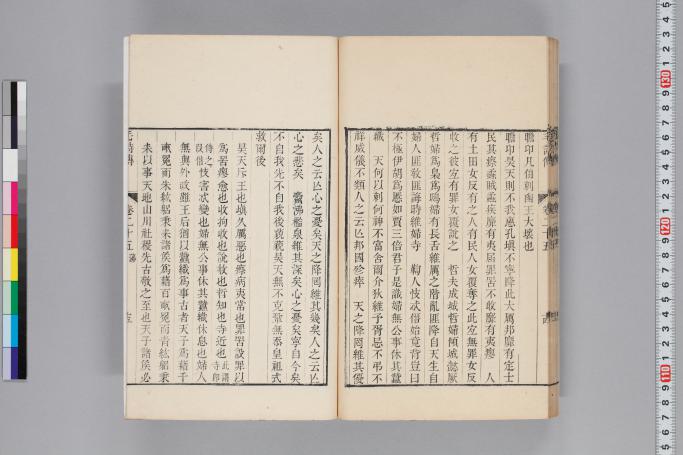 瞻卬凡伯刺幽王大壞也
瞻卬昊天則不我惠孔塡不寧降此大厲邦靡有定士
民其瘵蟊賊蟊疾靡有夷屆罪罟不收靡有夷瘳 人
有土田女反有之人有民人女覆奪之此宜無罪女反
收之彼宜有罪女覆說之 哲夫成城哲婦傾城懿厥
哲婦爲梟爲鴟婦有長舌維厲之階亂匪降自天生自
婦人匪教匪誨時維婦寺 鞫人忮忒譖始竟背豈曰
不極伊胡爲慝如賈三倍君子是識婦無公事休其蠶
織 天何以刺何神不富舍爾介狄維予胥忌不弔不
祥威儀不類人之云亡邦國殄瘁 天之降罔維其優
矣人之云亡心之憂矣天之降罔維其幾矣人之云亡
心之悲矣 觱沸檻泉維其深矣心之憂矣寧自今矣
不自我先不自我後藐藐昊天無不克鞏無忝皇祖式
救爾後
昊天斥王也塡久厲惡也瘵病夷常也罪罟設罪以
爲罟瘳愈也收拘收也說赦也哲知也寺近也
忮害忒變也婦無公事休其蠶織休息也婦人
無與外政雖王后猶以蠶織爲事古者天子爲藉千
畝冕而朱紘躬秉耒諸侯爲藉百畝冕而青紘躬秉
耒以事天地山川社稷先古敬之至也天子諸侯必
毛詩傳
卷二十五